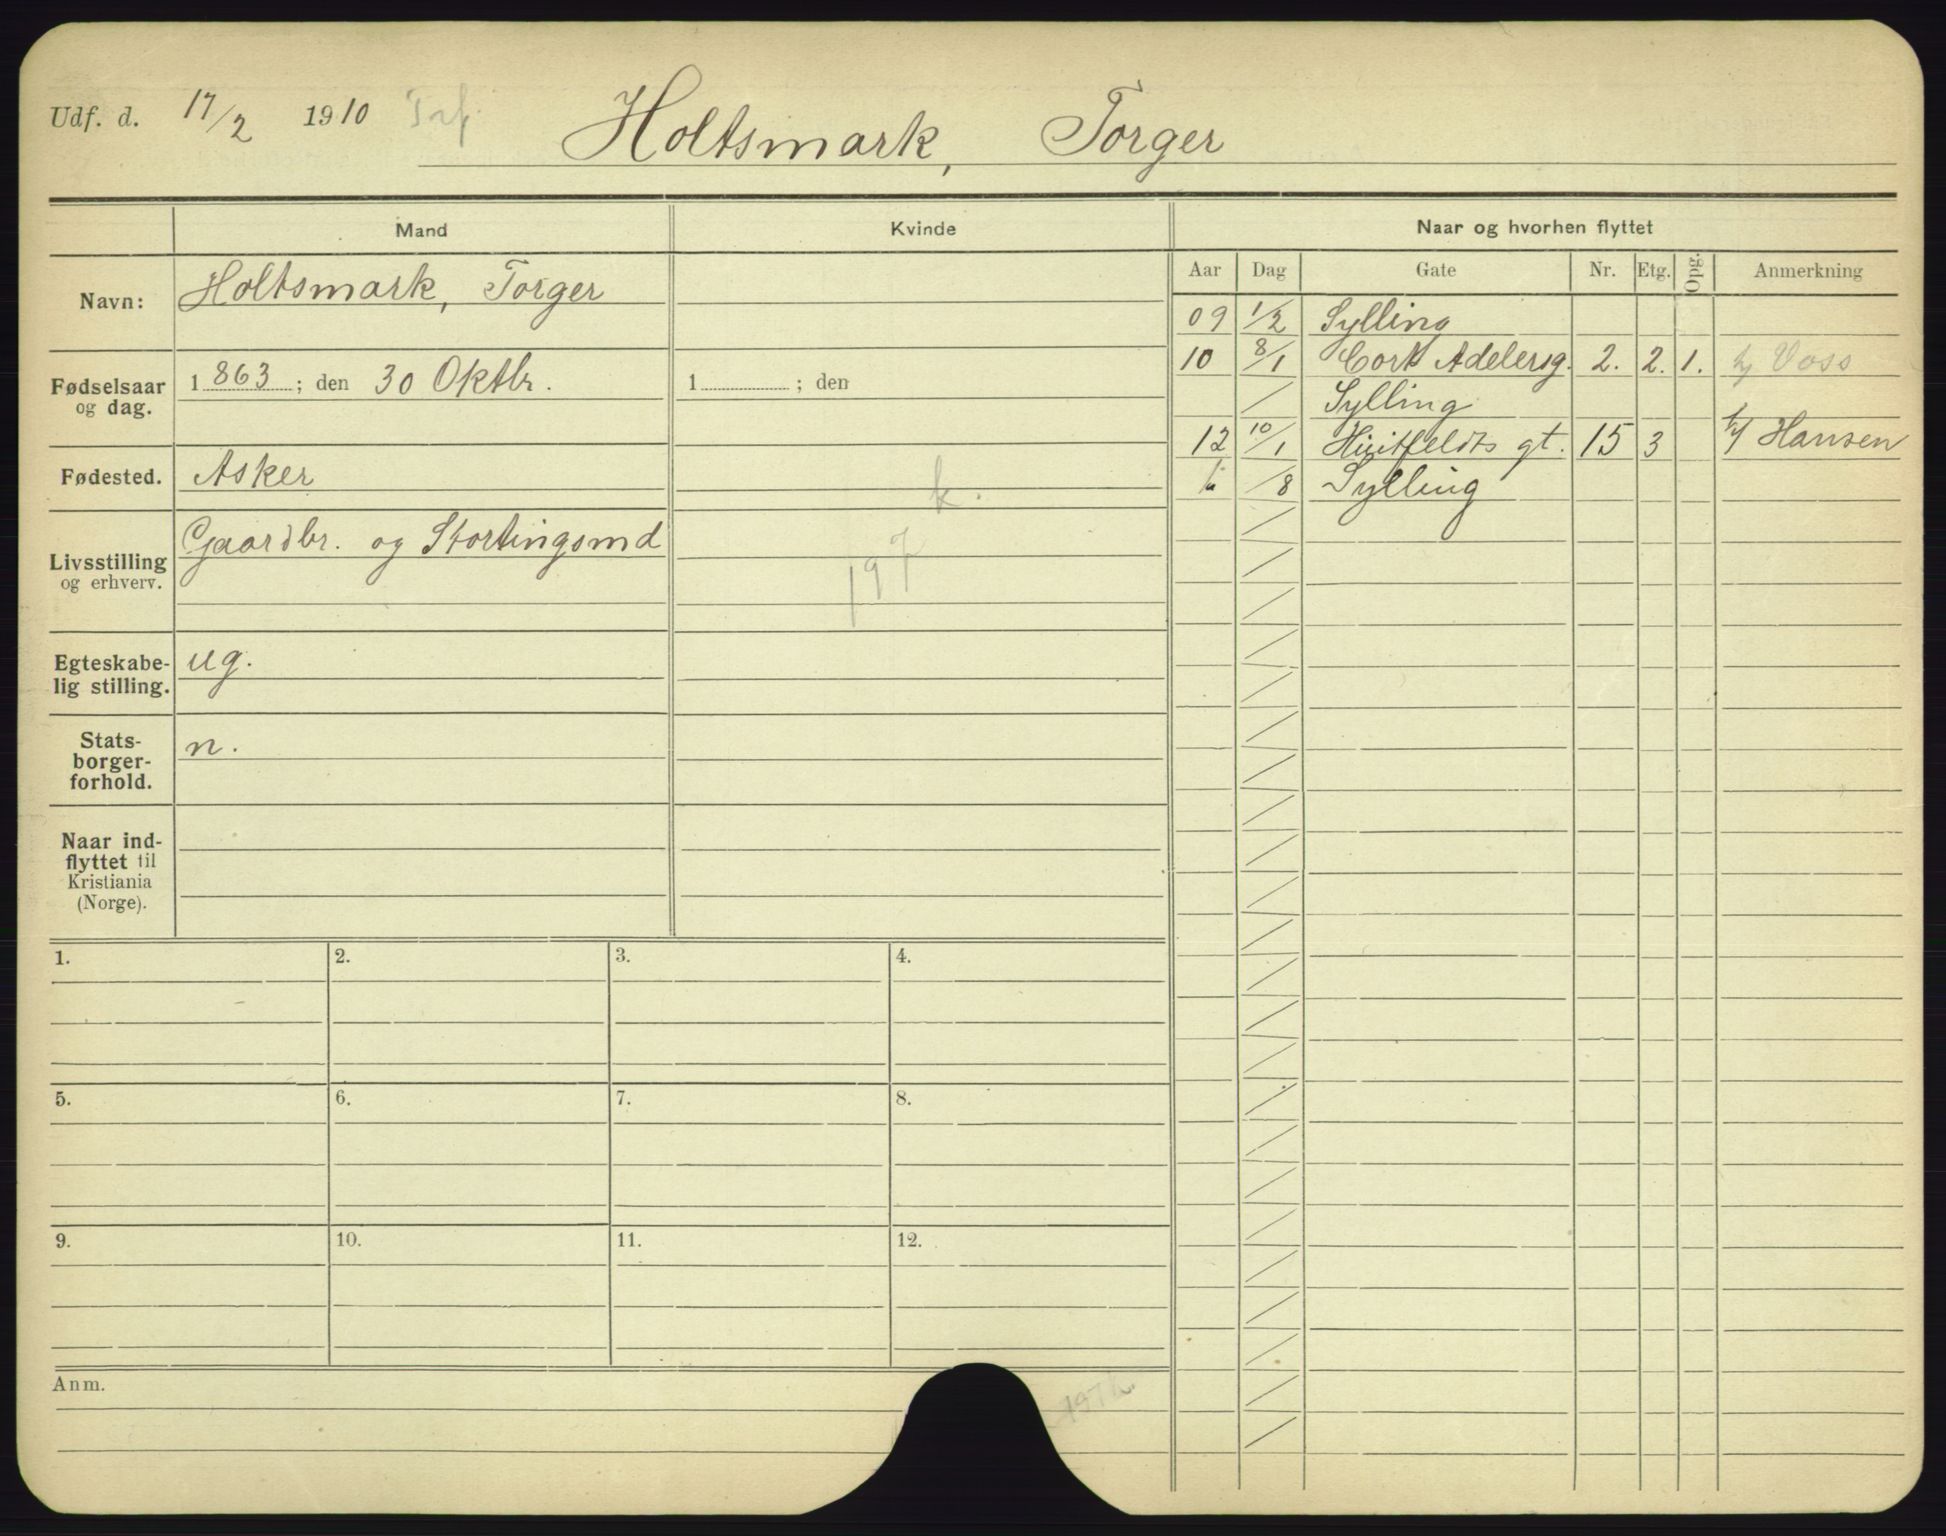 Udf. d. 17/2 1910
Holtsmark, Torger
Mand
Kvinde
Naar og hvorhen flyttet
Aar Dag Gate Nr. Etg. Opg. Anmerkning
Navn: Holtsmark, Torger
Fødselsaar og dag. 1 863 ; den 30 Oktbr. 1 ; den
Fødested. Asker
k.
Livsstilling og erhverv. Gaardbr. og Stortingsmd
197
Egteskabe-
lig stilling. ug.
Stats-
borger-
forhold. n.
Naar ind-
flyttet til
Kristiania
(Norge).
09 1/2 Sylling
10 8/1 Cort Adelersg. 2. 2. 1. h/ Voss
/ Sylling
12 10/1 Huitfeldts gt. 15 3 h/ Hansen
/8 Sylling
1. 2. 3. 4.
5. 6. 7. 8.
9. 10. 11. 12.
Anm.
197 k.